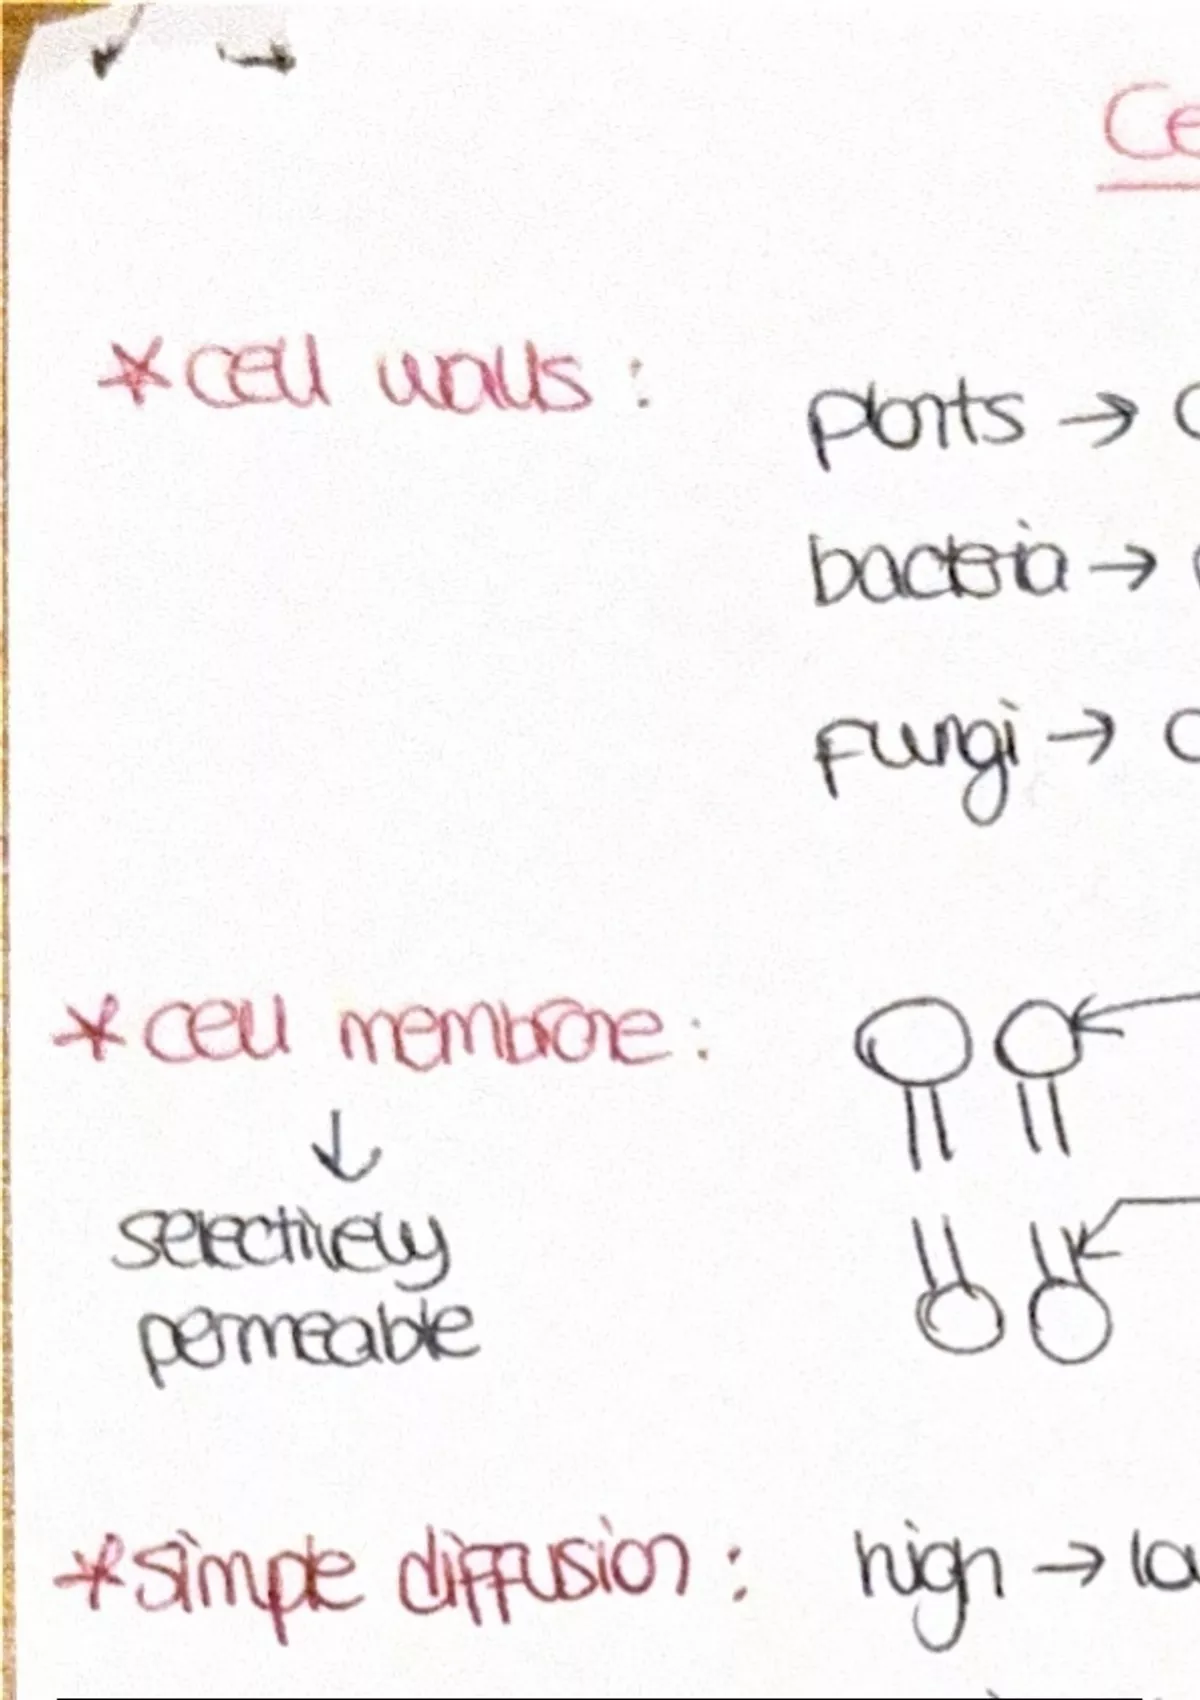 Ce
* cell walls :
plants →
bacteria →
fungi →
* cell membrane :
↓
selectively
permeable
* simple diffusion : high → lo